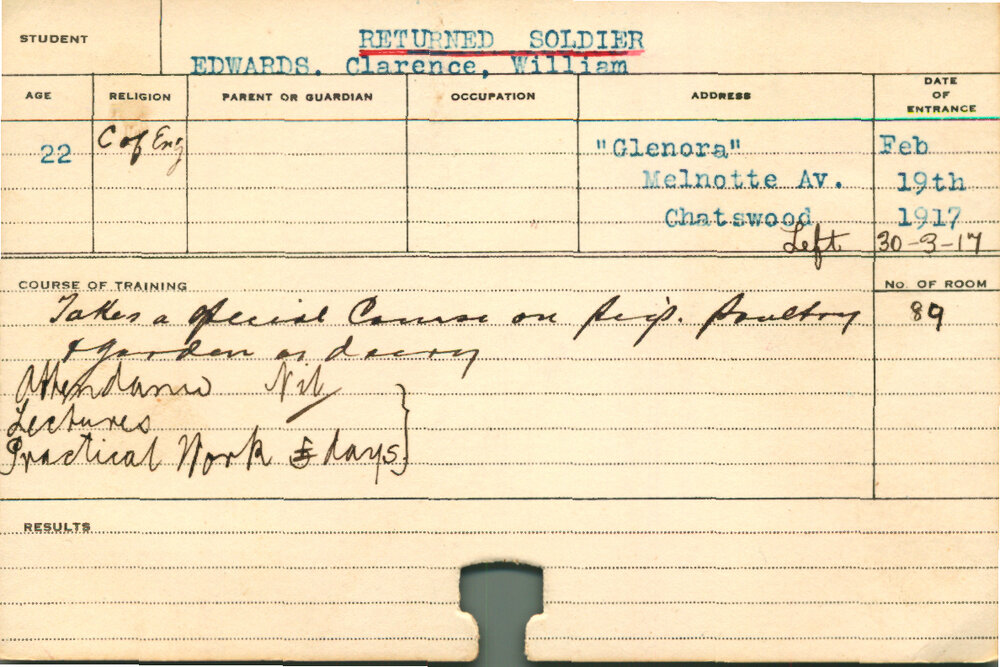 STUDENT
RETURNED SOLDIER
EDWARDS. Clarence, William
AGE
RELIGION
PARENT OR GUARDIAN
OCCUPATION
ADDRESS
DATE
OF
ENTRANCE
22
C of Eng
"Glenora"
Melnotte Av.
Chatswood
Feb
19th
1917
Left 30-3-17
COURSE OF TRAINING
No. OF ROOM
Takes a special Course on Pigs. Poultry
89
& garden or dairy
Attendance Nil
Lectures
Practical Work days
RESULTS